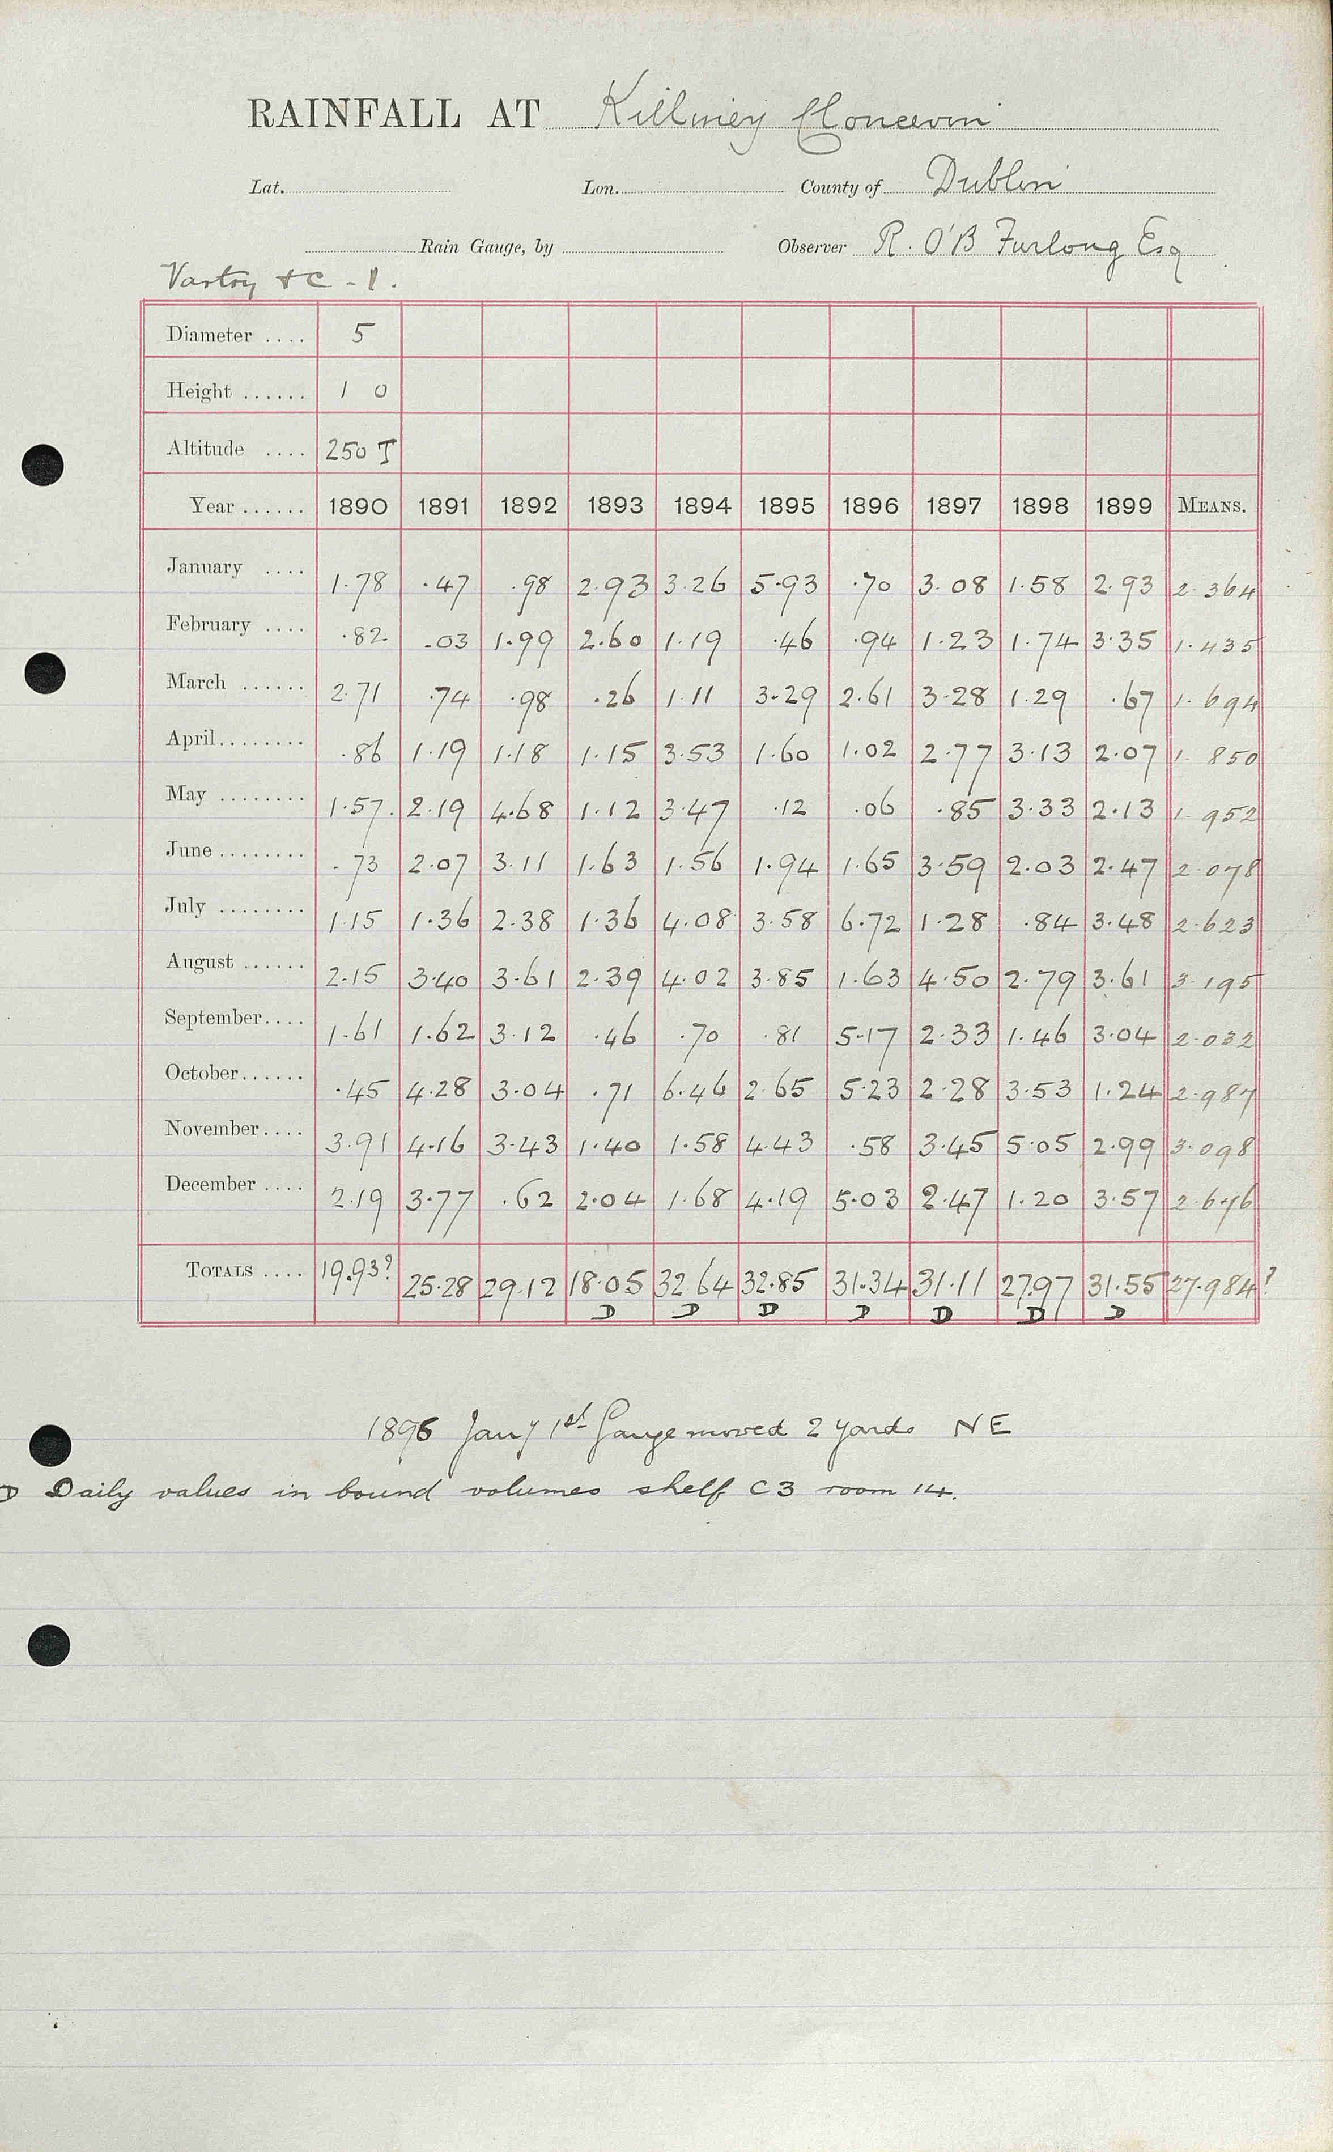 RAINFALL AT Killiney Cloncevin
Lat. Lon. County of Dublin
Rain Gauge, by Observer R. O'B Furlong Esq
Vartry &c - 1.
Diameter .... 5
Height ...... 1 0
Altitude .... 250 T
Year ...... 1890 1891 1892 1893 1894 1895 1896 1897 1898 1899 MEANS.
January .... 1.78 .47 .98 2.93 3.26 5.93 .70 3.08 1.58 2.93 2.364
February .... .82 .03 1.99 2.60 1.19 .46 .94 1.23 1.74 3.35 1.435
March ...... 2.71 .74 .98 .26 1.11 3.29 2.61 3.28 1.29 .67 1.694
April........ .86 1.19 1.18 1.15 3.53 1.60 1.02 2.77 3.13 2.07 1.850
May ........ 1.57 2.19 4.68 1.12 3.47 .12 .06 .85 3.33 2.13 1.952
June ........ .73 2.07 3.11 1.63 1.56 1.94 1.65 3.59 2.03 2.47 2.078
July ........ 1.15 1.36 2.38 1.36 4.08 3.58 6.72 1.28 .84 3.48 2.623
August ...... 2.15 3.40 3.61 2.39 4.02 3.85 1.63 4.50 2.79 3.61 3.195
September.... 1.61 1.62 3.12 .46 .70 .81 5.17 2.33 1.46 3.04 2.032
October...... .45 4.28 3.04 .71 6.46 2.65 5.23 2.28 3.53 1.24 2.987
November.... 3.91 4.16 3.43 1.40 1.58 4.43 .58 3.45 5.05 2.99 3.098
December .... 2.19 3.77 .62 2.04 1.68 4.19 5.03 2.47 1.20 3.57 2.676
TOTALS .... 19.93? 25.28 29.12 18.05 32.64 32.85 31.34 31.11 27.97 31.55 27.984?
D D D D D D D
1896 Jany 1st Gauge moved 2 yards NE
D Daily values in bound volumes shelf C3 room 14.